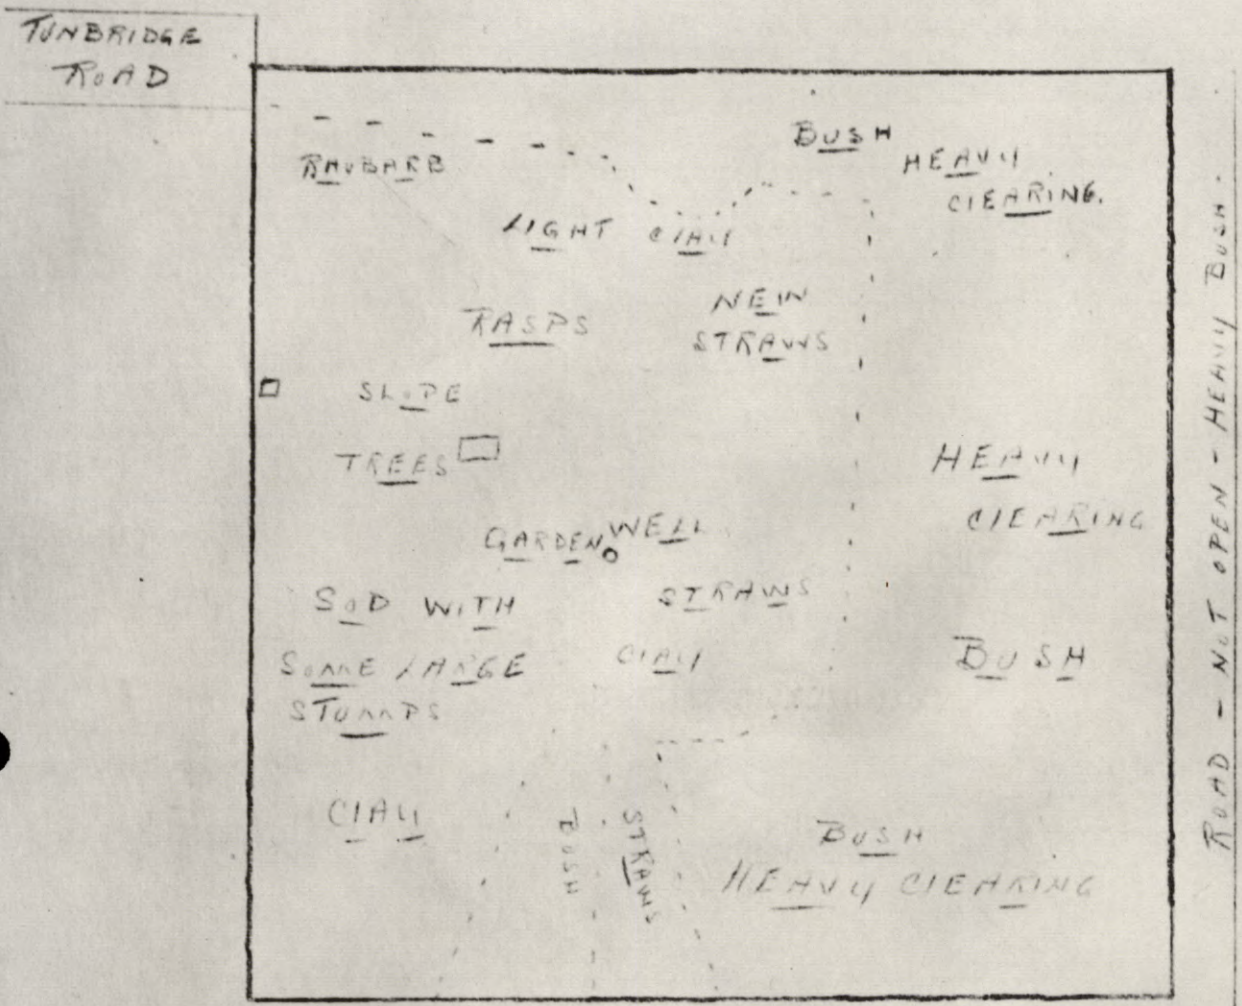 TUNBRIDGE
ROAD
BUSH
HEAVY
CLEARING.
RHUBARB
LIGHT CLAY
NEW
STRAWS
RASPS
SLOPE
TREES
HEAVY
CLEARING
GARDEN WELL
SOD WITH
SOME LARGE
STUMPS
STRAWS
CLAY
BUSH
CLAY
BUSH
STRAWS
BUSH
HEAVY CLEARING
ROAD - NOT OPEN - HEAVY BUSH.